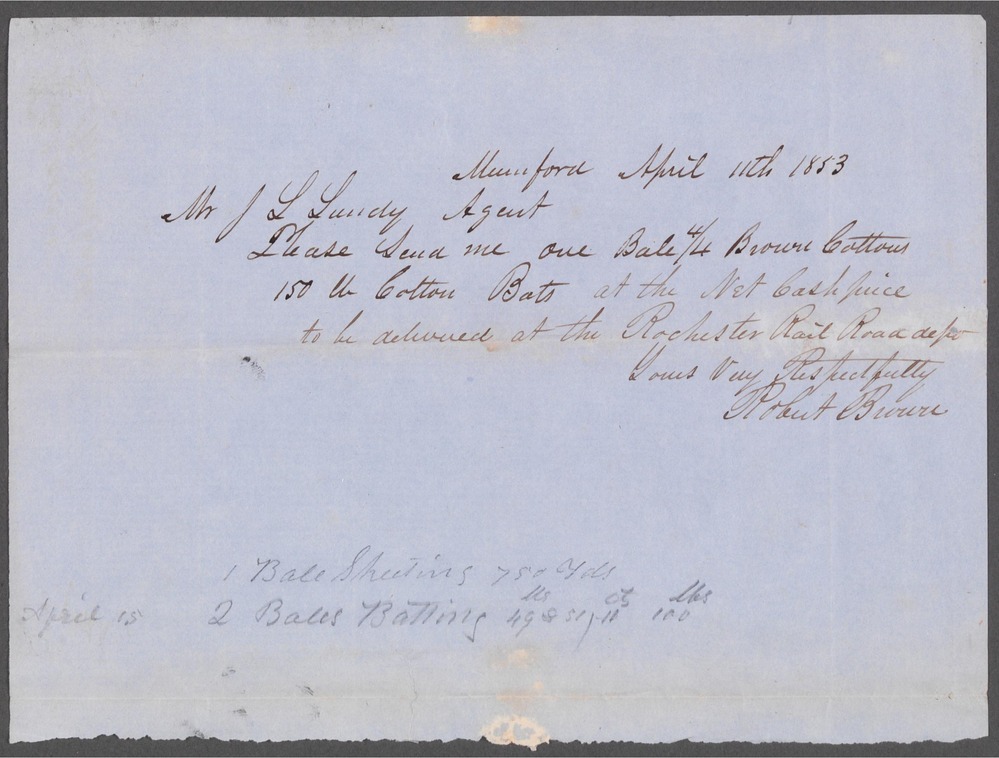 Mumford April 11th 1853
Mr J L Lundy Agent
Please Send me one Bale 4/4 Brown Cottons
150 lb Cotton Bats at the Net Cash price
to be delivered at the Rochester Rail Road depo
Yours Very Respectfully
Robert Brown
1 Bale Sheeting 750 Yds
April 15 2 Bales Batting 49 & 51, 11 cts 100 lbs